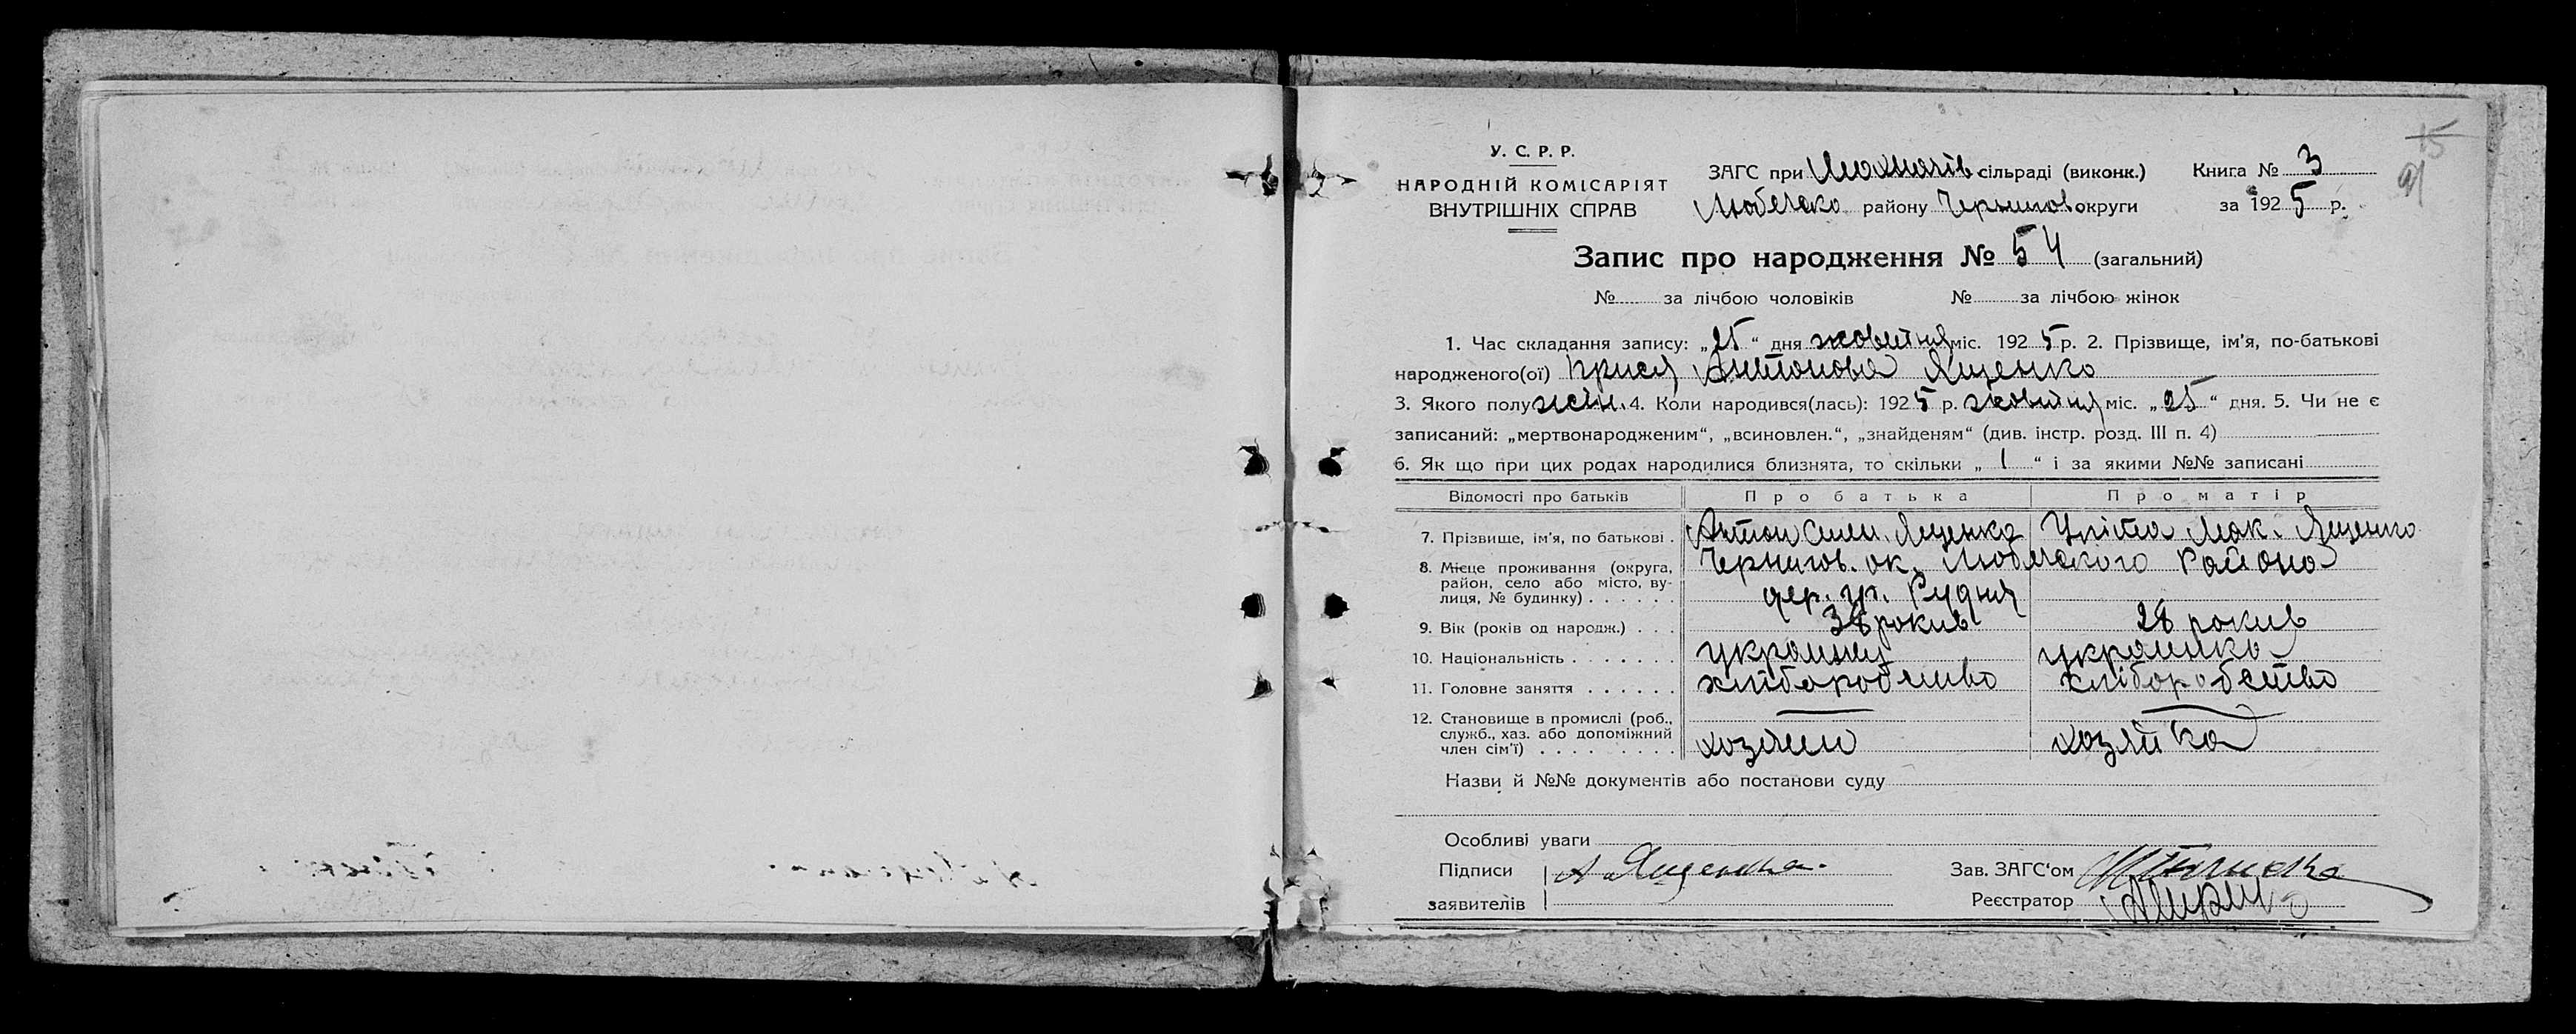 15
У. С. Р. Р.
НАРОДНІЙ КОМІСАРІЯТ
ВНУТРІШНІХ СПРАВ
ЗАГС при Мохначів сільраді (виконк.) Книга № 3
Любечско району Чернигов округи за 1925 р.
Запис про народження № 54 (загальний)
№ за лічбою чоловіків № за лічбою жінок
1. Час складання запису: „25“ дня жовтня міс. 1925 р. 2. Прізвище, ім'я, по-батькові
народженого(ої) Крися Антонова Ященко
3. Якого полу жін. 4. Коли народився(лась): 1925 р. жовтня міс. „25“ дня. 5. Чи не є
записаний: „мертвонародженим“, „всиновлен.“, „знайденям“ (див. інстр. розд. III п. 4)
6. Як що при цих родах народилися близнята, то скільки „1“ і за якими №№ записані
Відомості про батьків Про батька Про матір
7. Прізвище, ім'я, по батькові . Антон Ященко Уліта Мак. Ященко
8. Місце проживання (округа, район, село або місто, вулиця, № будинку) . . . . . . Чернигов. ок. Любечского Района
дер. гр. Рудня
9. Вік (років од народж.) . . . 38 рокив 28 рокив
10. Національність . . . . . . . украинец украинка
11. Головне заняття . . . . . . хлібородство хліборобство
12. Становище в промислі (роб., служб., хаз. або допоміжний член сім'ї) . . . . . . . . . хозяин хозяйка
Назви й №№ документів або постанови суду
Особливі уваги
Підписи заявителів А Ященко.
Зав. ЗАГС'ом
Реєстратор